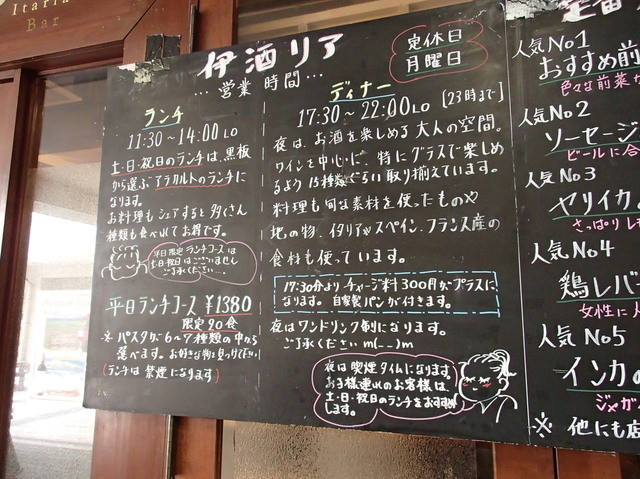 Italia
Bar
伊酒リア
定休日
月曜日
...営業時間...
ランチ
11:30~14:00 LO
土・日・祝日のランチは、黒板
から選ぶアラカルトのランチに
なります。
お料理もシェアすると多くさん
種類も食べれてお得です。
平日限定ランチコースは
土・日・祝日はございません
ご了承ください...
平日ランチコース ¥1380
限定20食
※パスタが6~7種類の中から
選べます。お好きな物を見つけて下さい
(ランチは禁煙になります)
ディナー
17:30~22:00 LO [23時まで]
夜は、お酒を楽しめる大人の空間。
ワインを中心に、特にグラスで楽しめ
るよう15種類ぐらい取り揃えています。
料理も旬な素材を使ったものや
地の物、イタリアやスペイン、フランス産の
食材も使っています。
17:30分よりチャージ料300円がプラスに
なります。自家製パンが付きます。
夜はワンドリンク制になります。
ご了承くださいm(__)m
夜は喫煙タイムになります。
お子様連れのお客様は、
土・日・祝日のランチをおすすめ
します。
定番
人気No1
おすすめ前
色々な前菜
人気No2
ソーセージ
ビールに合
人気No3
ヤリイカ
さっぱり
人気No4
鶏レバ
女性に人
人気No5
インカの
ジャガ
※他にも店